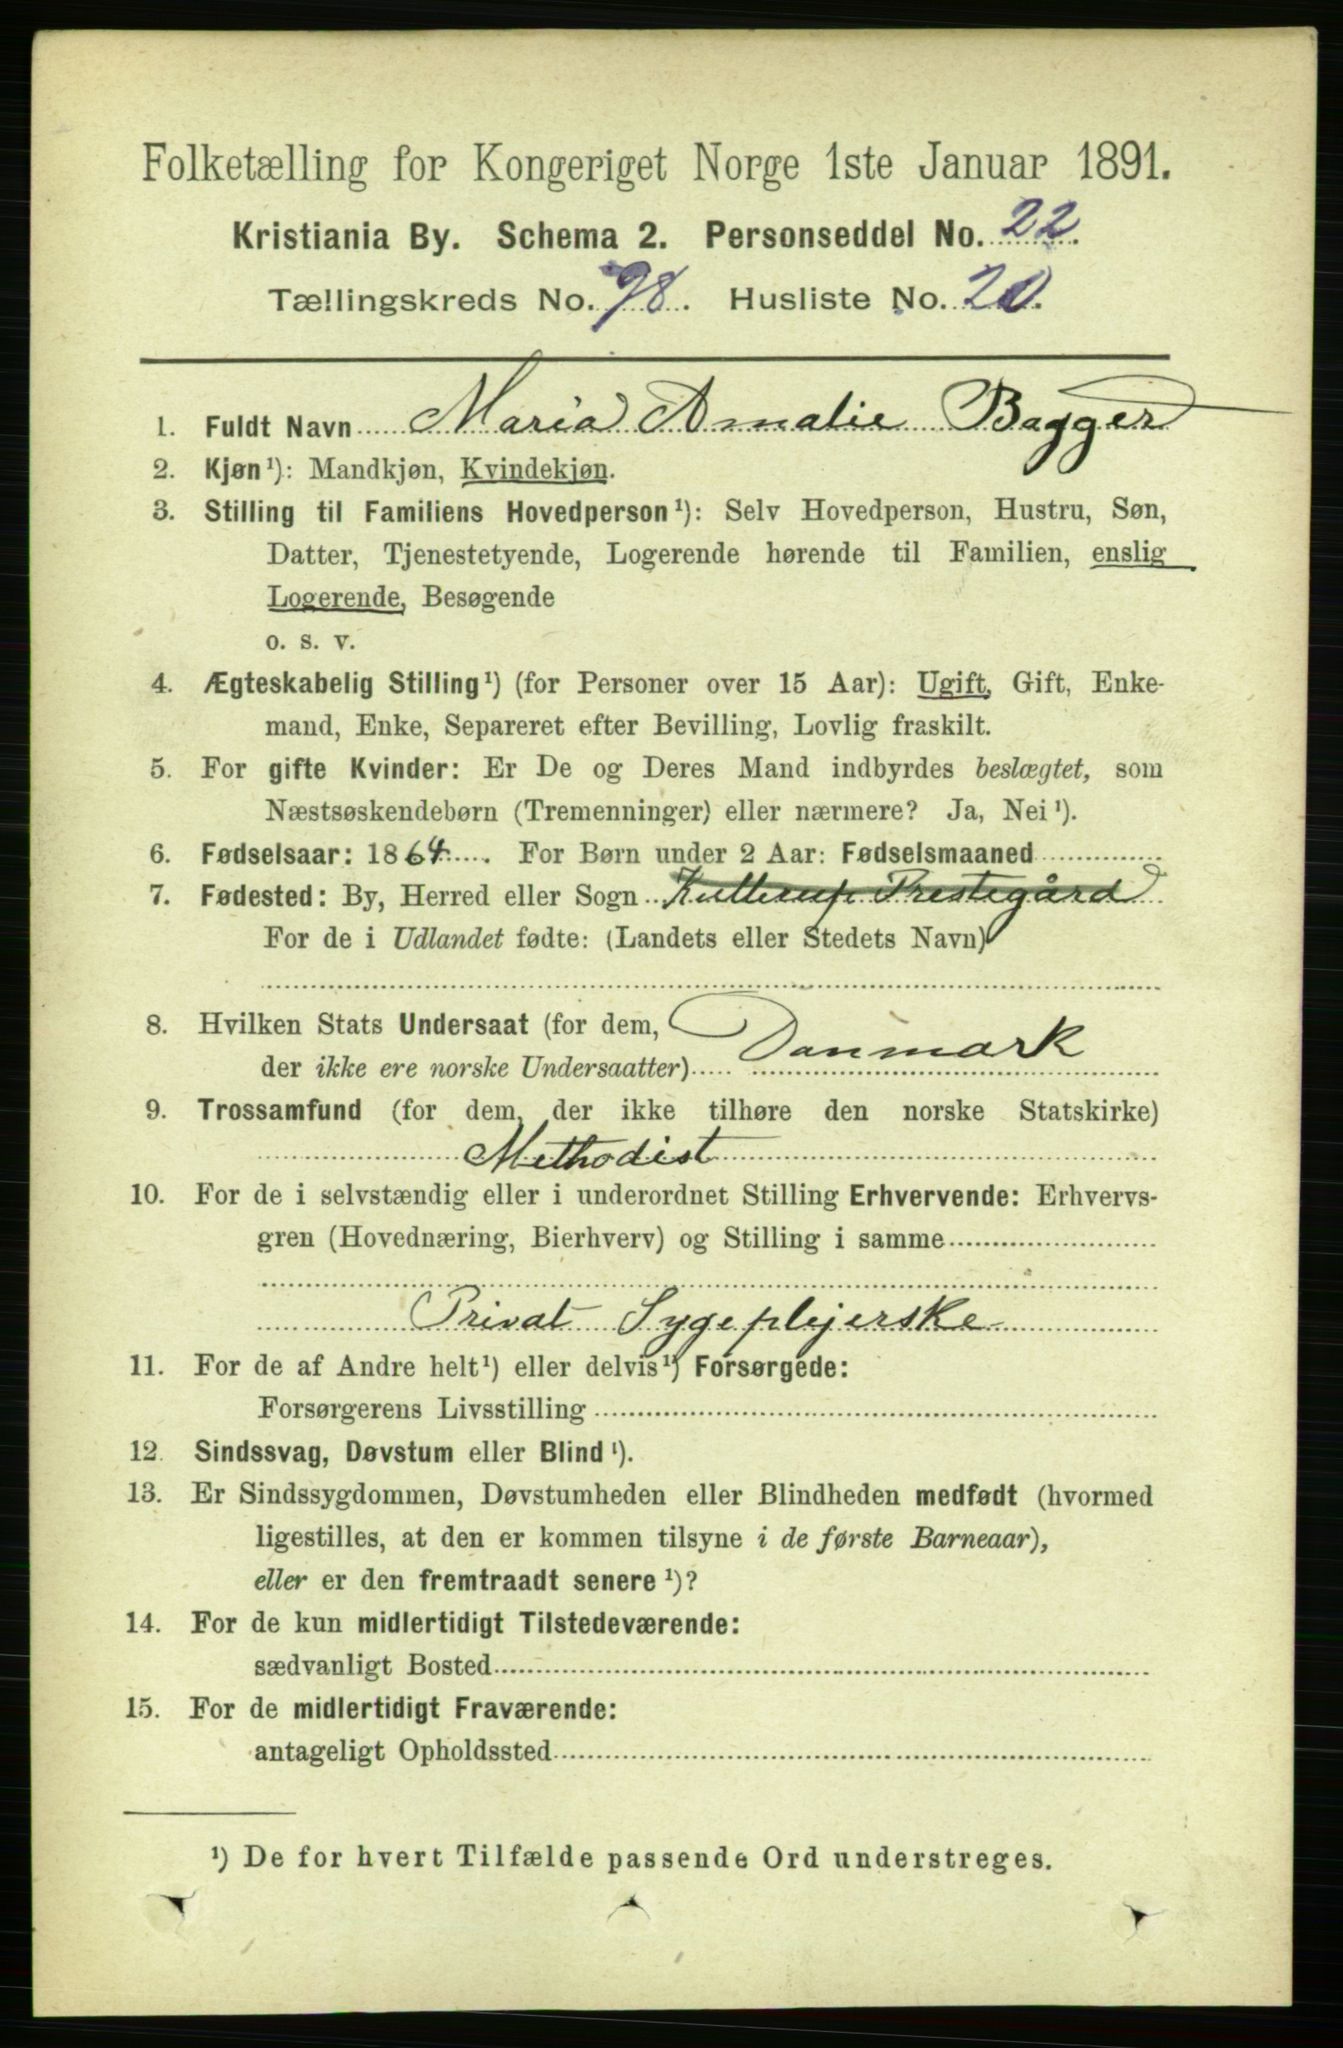 Folketælling for Kongeriget Norge 1ste Januar 1891.
Kristiania By. Schema 2. Personseddel No. 22.
Tællingskreds No. 98. Husliste No. 20.
1. Fuldt Navn Maria Amalie Bagger
2. Kjøn¹): Mandkjøn, Kvindekjøn.
3. Stilling til Familiens Hovedperson¹): Selv Hovedperson, Hustru, Søn,
Datter, Tjenestetyende, Logerende hørende til Familien, enslig
Logerende, Besøgende
o. s. v.
4. Ægteskabelig Stilling¹) (for Personer over 15 Aar): Ugift, Gift, Enke-
mand, Enke, Separeret efter Bevilling, Lovlig fraskilt.
5. For gifte Kvinder: Er De og Deres Mand indbyrdes beslægtet, som
Næstsøskendebørn (Tremenninger) eller nærmere? Ja, Nei¹).
6. Fødselsaar: 1864. For Børn under 2 Aar: Fødselsmaaned
7. Fødested: By, Herred eller Sogn Prestegård
For de i Udlandet fødte: (Landets eller Stedets Navn)
8. Hvilken Stats Undersaat (for dem,
der ikke ere norske Undersaatter) Danmark
9. Trossamfund (for dem, der ikke tilhøre den norske Statskirke)
Methodist
10. For de i selvstændig eller i underordnet Stilling Erhvervende: Erhvervs-
gren (Hovednæring, Bierhverv) og Stilling i samme
Privat Sygeplejerske
11. For de af Andre helt¹) eller delvis¹) Forsørgede:
Forsørgerens Livsstilling
12. Sindssvag, Døvstum eller Blind¹).
13. Er Sindssygdommen, Døvstumheden eller Blindheden medfødt (hvormed
ligestilles, at den er kommen tilsyne i de første Barneaar),
eller er den fremtraadt senere¹)?
14. For de kun midlertidigt Tilstedeværende:
sædvanligt Bosted
15. For de midlertidigt Fraværende:
antageligt Opholdssted
¹) De for hvert Tilfælde passende Ord understreges.